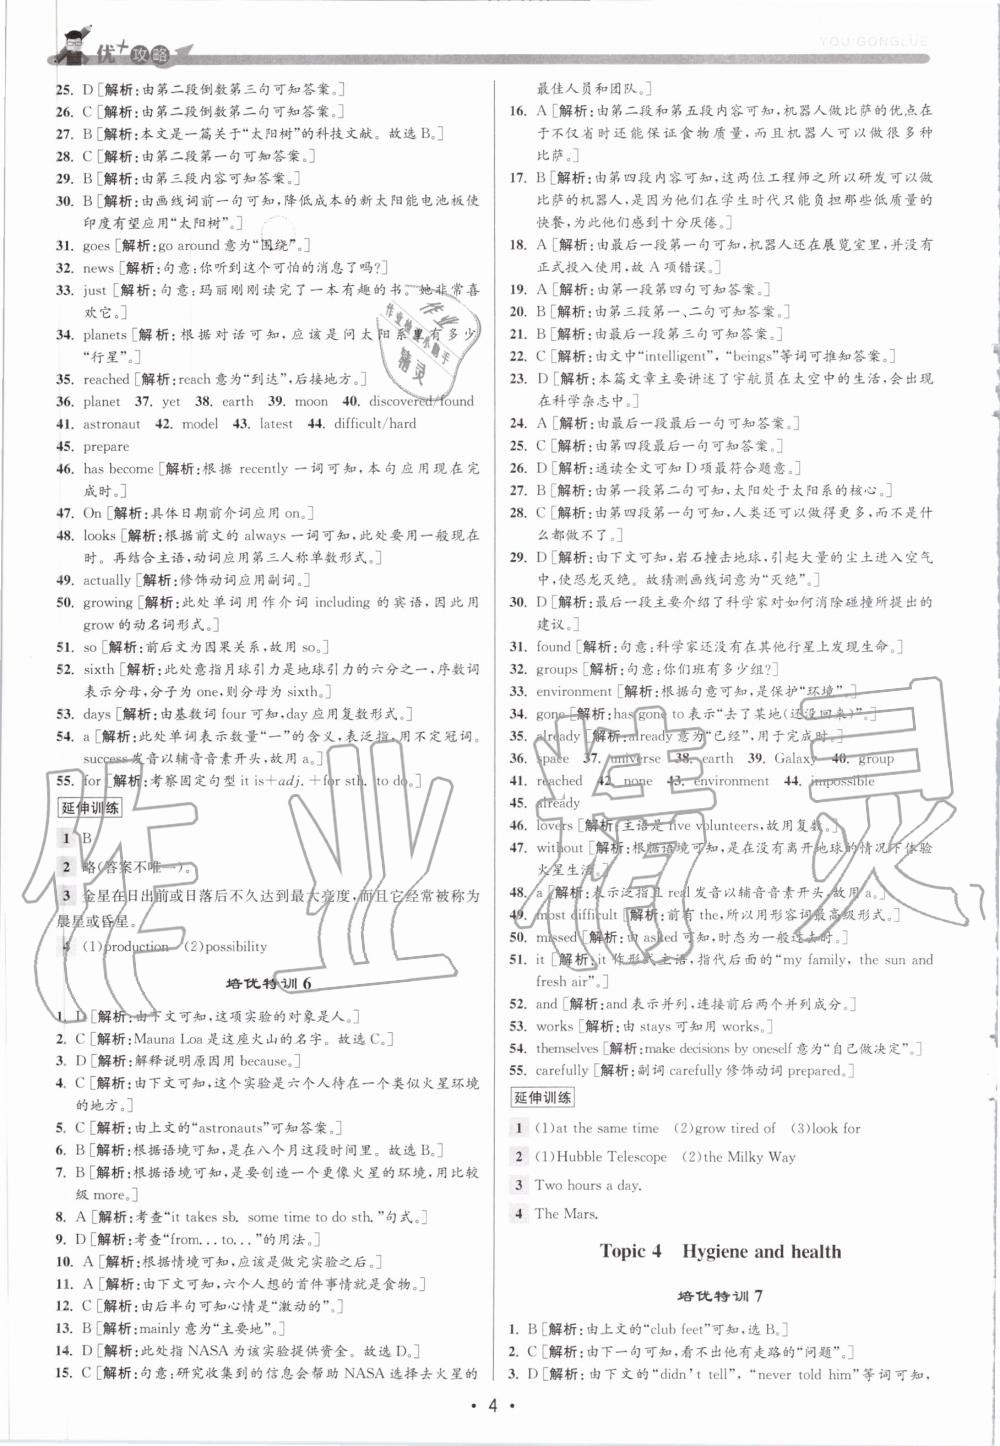 优+攻略
YOU GONGLUE
25. D [解析:由第二段倒数第三句可知答案。]
26. C [解析:由第二段倒数第二句可知答案。]
27. B [解析:本文是一篇关于“太阳树”的科技文献。故选B。]
28. C [解析:由第二段第一句可知答案。]
29. B [解析:由第三段内容可知答案。]
30. B [解析:由画线词前一句可知,降低成本的新太阳能电池板使
印度有望应用“太阳树”。]
31. goes [解析:go around 意为“围绕”。]
32. news [解析:句意:你听到这个可怕的消息了吗?]
33. just [解析:句意:玛丽刚刚读完了一本有趣的书。她非常喜
欢它。]
34. planets [解析:根据对话可知,应该是问太阳系里有多少
“行星”。]
35. reached [解析:reach 意为“到达”,后接地方。]
36. planet 37. yet 38. earth 39. moon 40. discovered/found
41. astronaut 42. model 43. latest 44. difficult/hard
45. prepare
46. has become [解析:根据 recently 一词可知,本句应用现在完
成时。]
47. On [解析:具体日期前介词应用 on。]
48. looks [解析:根据前文的 always 一词可知,此处要用一般现在
时。再结合主语,动词应用第三人称单数形式。]
49. actually [解析:修饰动词应用副词。]
50. growing [解析:此处单词用作介词 including 的宾语,因此用
grow 的动名词形式。]
51. so [解析:前后文为因果关系,故用 so。]
52. sixth [解析:此处意指月球引力是地球引力的六分之一,序数词
表示分母,分子为 one,则分母为 sixth。]
53. days [解析:由基数词 four 可知,day 应用复数形式。]
54. a [解析:此处单词表示数量“一”的含义,表泛指,用不定冠词。
success 发音以辅音音素开头,故用 a。]
55. for [解析:考察固定句型 it is+adj.+for sth. to do。]
延伸训练
1 B
2 略(答案不唯一)。
3 金星在日出前或日落后不久达到最大亮度,而且它经常被称为
晨星或昏星。
4 (1)production (2)possibility
培优特训 6
1. D [解析:由下文可知,这项实验的对象是人。]
2. C [解析:Mauna Loa 是这座火山的名字。故选 C。]
3. D [解析:解释说明原因用 because。]
4. C [解析:由下文可知,这个实验是六个人待在一个类似火星环境
的地方。]
5. C [解析:由上文的“astronauts”可知答案。]
6. B [解析:根据语境可知,是在八个月这段时间里。故选 B。]
7. B [解析:根据语境可知,是要创造一个更像火星的环境,用比较
级 more。]
8. A [解析:考查“it takes sb. some time to do sth.”句式。]
9. D [解析:考查“from...to...”的用法。]
10. A [解析:根据情境可知,应该是做完实验之后。]
11. A [解析:由下文可知,六个人想的首件事情就是食物。]
12. C [解析:由后半句可知心情是“激动的”。]
13. B [解析:mainly 意为“主要地”。]
14. D [解析:此处指 NASA 为该实验提供资金。故选 D。]
15. C [解析:句意:研究收集到的信息会帮助 NASA 选择去火星的
最佳人员和团队。]
16. A [解析:由第二段和第五段内容可知,机器人做比萨的优点在
于不仅省时还能保证食物质量,而且机器人可以做很多种
比萨。]
17. B [解析:由第四段内容可知,这两位工程师之所以研发可以做
比萨的机器人,是因为他们在学生时代只能负担那些低质量的
快餐,为此他们感到十分厌倦。]
18. A [解析:由最后一段第一句可知,机器人还在展览室里,并没有
正式投入使用,故 A 项错误。]
19. A [解析:由第一段第四句可知答案。]
20. B [解析:由第三段第一、二句可知答案。]
21. B [解析:由最后一段第三句可知答案。]
22. C [解析:由文中“intelligent”, “beings”等词可推知答案。]
23. D [解析:本篇文章主要讲述了宇航员在太空中的生活,会出现
在科学杂志中。]
24. A [解析:由最后一段最后一句可知答案。]
25. C [解析:由第四段最后一句可知答案。]
26. D [解析:通读全文可知 D 项最符合题意。]
27. B [解析:由第一段第二句可知,太阳处于太阳系的核心。]
28. C [解析:由第四段第一句可知,人类还可以做得更多,而不是什
么都做不了。]
29. D [解析:由下文可知,岩石撞击地球,引起大量的尘土进入空气
中,使恐龙灭绝。故猜测画线词意为“灭绝”。]
30. D [解析:最后一段主要介绍了科学家对如何消除碰撞所提出的
建议。]
31. found [解析:句意:科学家还没有在其他行星上发现生命。]
32. groups [解析:句意:你们班有多少组?]
33. environment [解析:根据句意可知,是保护“环境”。]
34. gone [解析:has gone to 表示“去了某地(还没回来)”。]
35. already [解析:already 意为“已经”,用于完成时。]
36. space 37. universe 38. earth 39. Galaxy 40. group
41. reached 42. none 43. environment 44. impossible
45. already
46. lovers [解析:主语是 five volunteers,故用复数。]
47. without [解析:根据语境可知,是在没有离开地球的情况下体验
火星生活。]
48. a [解析:表示泛指且 real 发音以辅音音素开头,故用 a。]
49. most difficult [解析:前有 the,所以用形容词最高级形式。]
50. missed [解析:由 asked 可知,时态为一般过去时。]
51. it [解析:it 作形式主语,指代后面的“my family, the sun and
fresh air”。]
52. and [解析:and 表示并列,连接前后两个并列成分。]
53. works [解析:由 stays 可知用 works。]
54. themselves [解析:make decisions by oneself 意为“自己做决定”。]
55. carefully [解析:副词 carefully 修饰动词 prepared。]
延伸训练
1 (1)at the same time (2)grow tired of (3)look for
2 (1)Hubble Telescope (2)the Milky Way
3 Two hours a day.
4 The Mars.
Topic 4 Hygiene and health
培优特训 7
1. B [解析:由上文的“club feet”可知,选 B。]
2. C [解析:由下一句可知,看不出他有走路的“问题”。]
3. D [解析:由下文的“didn't tell”, “never told him”等词可知,
• 4 •
作业精灵